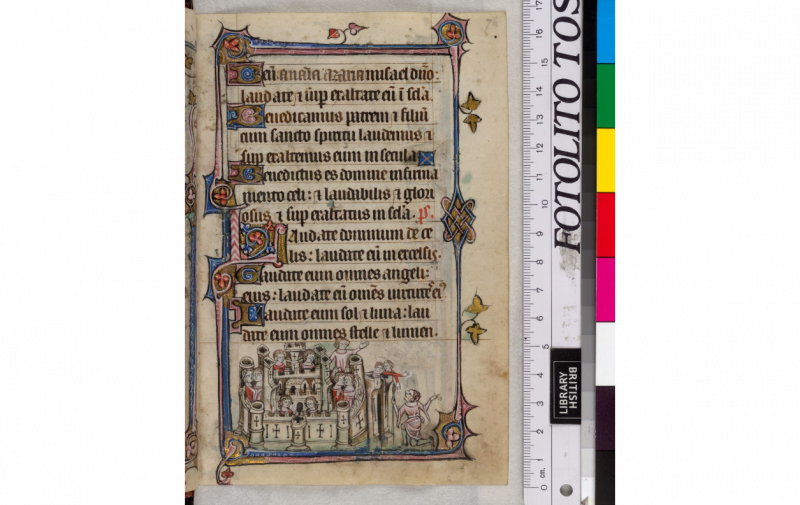 76
Bn̄ anania azaria misael dn̄o:
laudate ⁊ sup̄ exaltate eū ī sc̄la.
Benedicamus patrem ⁊ filiū
cum sancto spiritu laudemus ⁊
sup exaltemus eum in secula
Benedictus es domine in firma
mento celi: ⁊ laudabilis ⁊ glori
osus ⁊ sup exaltatus in sc̄la. p̄s.
Laudate dominum de ce
lis: laudate eū in excelsis.
Laudate eum omnes angeli
eius: laudate eū omēs uirtutes eiꝰ
Laudate eum sol ⁊ luna: lau
date eum omnes stelle ⁊ lumen.
FOTOLITO TOS
BRITISH
LIBRARY
0 cm. 1 2 3 4 5 6 7 8 9 10 11 12 13 14 15 16 17